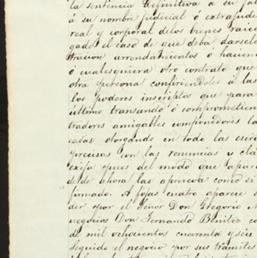 la sentencia definitiva a su fa
á su nombre judicial ó extrajudi
real y corporal de los bienes raice
gado el caso de que deba darsele
tracion arrendamientos ó hacien
ó cualesquiera otro contrato que
otra persona confiriendole á las
los poderes insertos que para
ultimo transando ó comprometien
tradores amigables componedores la
esadas otorgando en todo las escri
precisas con las renuncias y clá
exija pues del modo que
desde ahora las aprueba como si
firmado. A fojas cuatro aparece
der por el Señor Don Gregorio
negocios Don Fernando Benitez co
de mil ochocientos cuarenta y seis
seguido el negocio por sus trámites